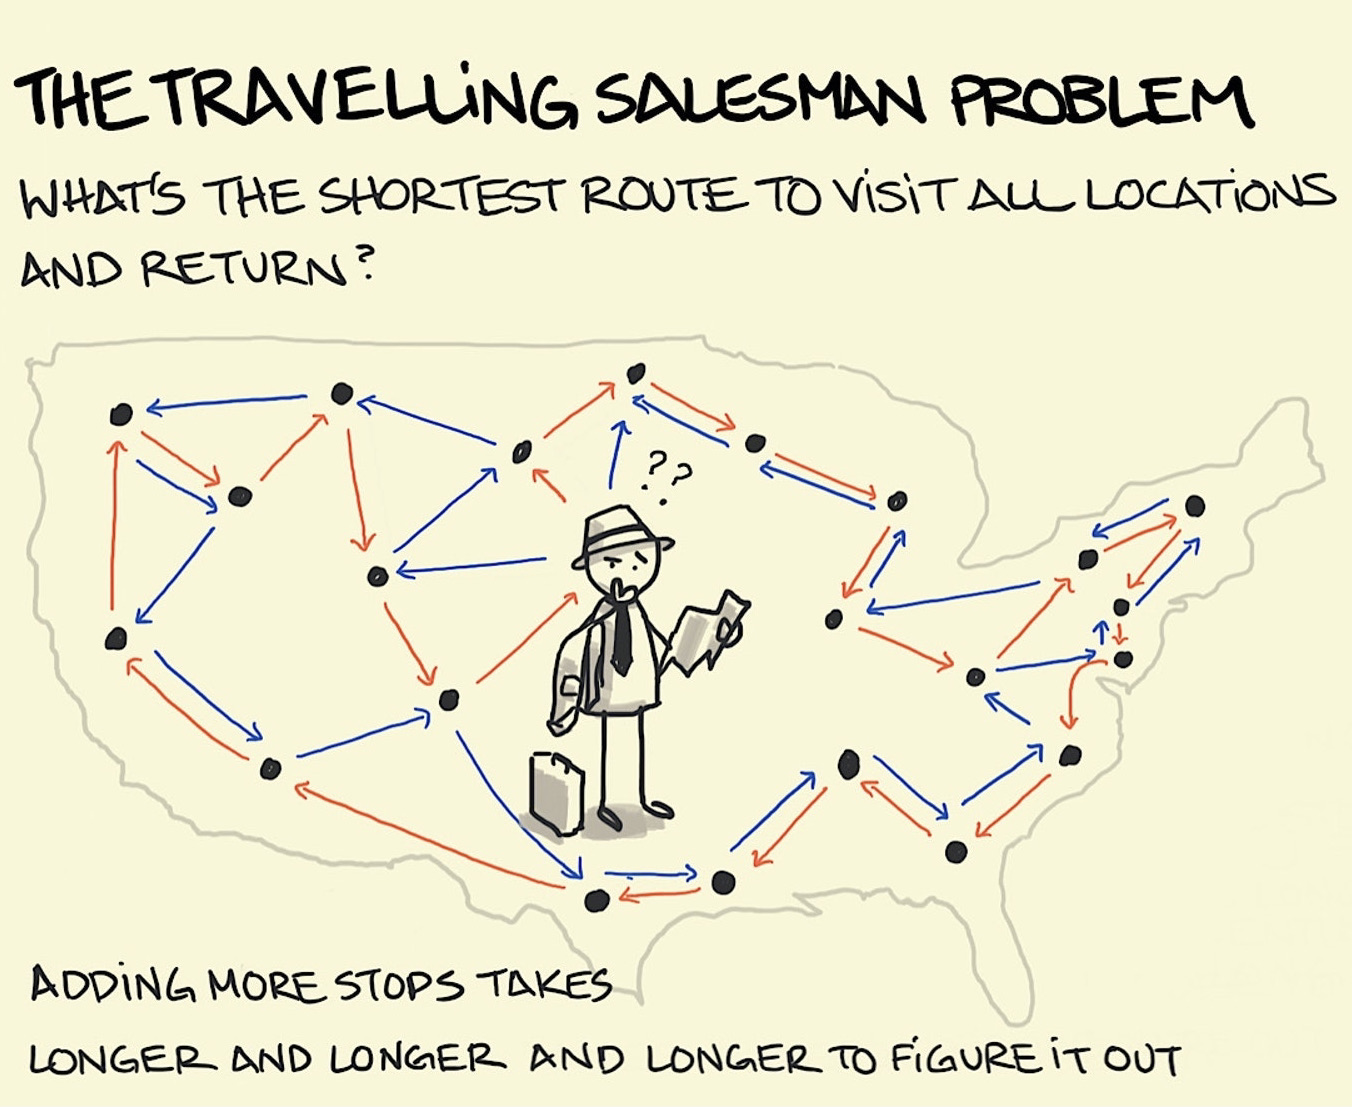 THE TRAVELLING SALESMAN PROBLEM
WHAT'S THE SHORTEST ROUTE TO VISIT ALL LOCATIONS
AND RETURN?
??
ADDING MORE STOPS TAKES
LONGER AND LONGER AND LONGER TO FIGURE IT OUT